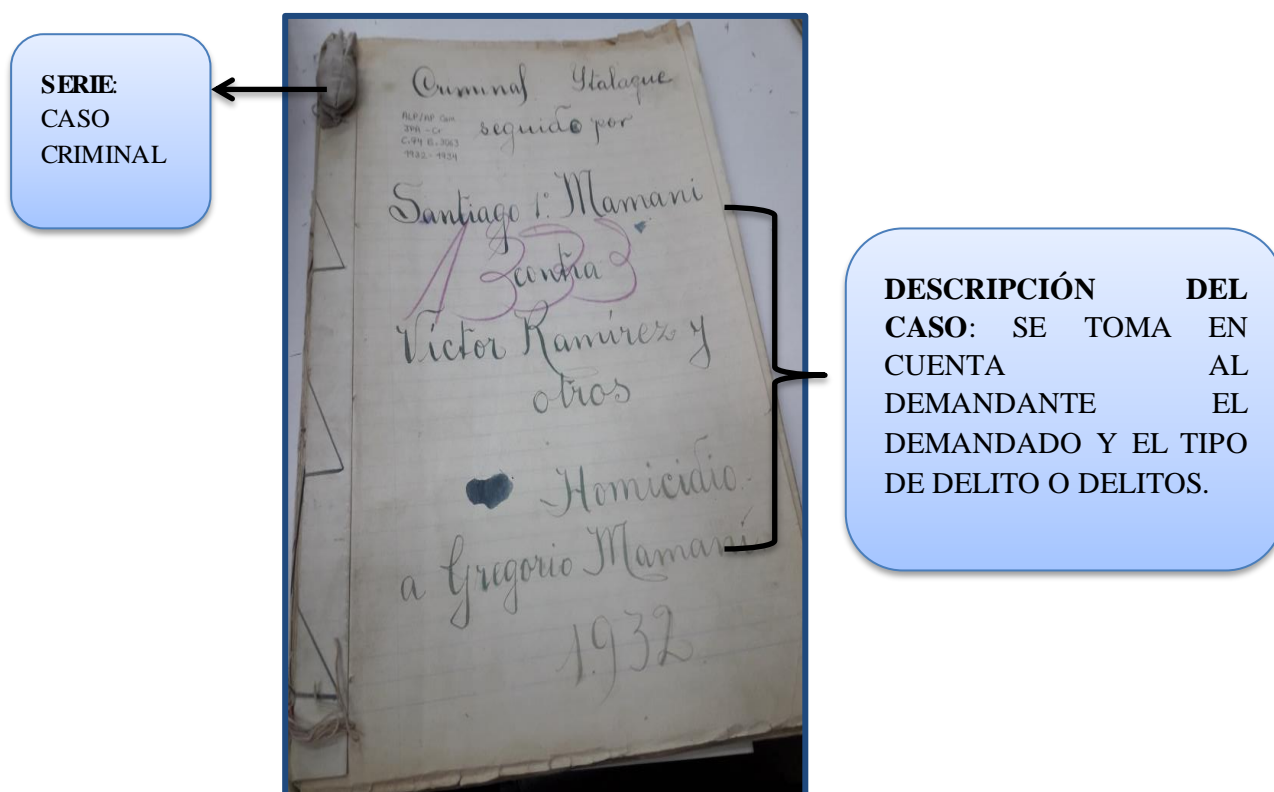 SERIE:
CASO
CRIMINAL
Criminal Italaque
ALP/AP Cam
JPA - Cr
C.94 E.3063
1932 - 1934
seguido por
Santiago 1º. Mamani
1333
contra
Víctor Ramírez y
otros
Homicidio
a Gregorio Mamaní
1.932
DESCRIPCIÓN DEL
CASO: SE TOMA EN
CUENTA AL
DEMANDANTE EL
DEMANDADO Y EL TIPO
DE DELITO O DELITOS.